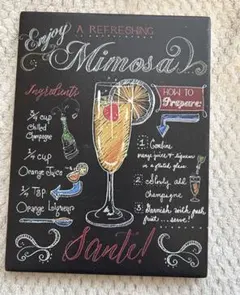 Enjoy
A REFRESHING
Mimosa
Ingredients
3/4 cup
Chilled
Champagne
1/4 cup
Orange Juice
1/2 Tbsp
Orange Liqueur
HOW TO
Prepare:
1: Combine
orange juice & liqueur
in a fluted glass
2 Slowly add
champagne
3 Garnish with fresh
fruit ... serve!
Santé!